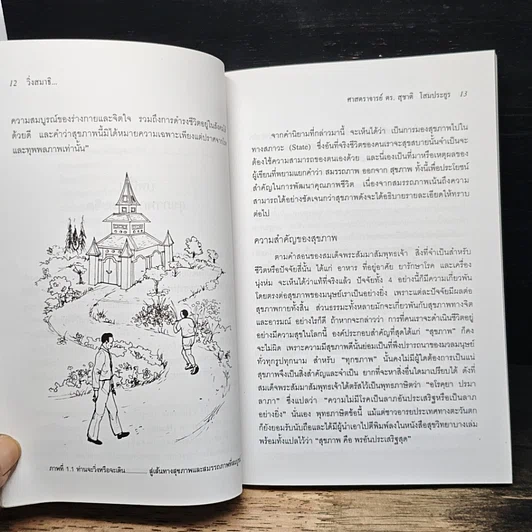 12 วิ่งสมาธิ...
ความสมบูรณ์ของร่างกายและจิตใจ รวมถึงการดำรงชีวิตอยู่ในสังคมได้
ด้วยดี และคำว่าสุขภาพนี้มิได้หมายความเฉพาะเพียงแต่ปราศจากโรค
และทุพพลภาพเท่านั้น"
ภาพที่ 1.1 ท่านจะวิ่งหรือจะเดิน........สู่เส้นทางสุขภาพและสมรรถภาพที่สมบูรณ์
ศาสตราจารย์ ดร. สุชาติ โสมประยูร 13
จากคำนิยามที่กล่าวมานี้ จะเห็นได้ว่า เป็นการมองสุขภาพไปใน
ทางสภาวะ (State) ซึ่งอันที่จริงชีวิตของคนเราจะสุขสบายนั้นจำเป็นจะ
ต้องใช้ความสามารถของตนเองด้วย และนี่เองเป็นที่มาหรือเหตุผลของ
ผู้เขียนที่พยายามแยกคำว่า สมรรถภาพ ออกจาก สุขภาพ ทั้งนี้เพื่อประโยชน์
สำคัญในการพัฒนาคุณภาพชีวิต เนื่องจากสมรรถภาพเน้นถึงความ
สามารถได้อย่างชัดเจนกว่าสุขภาพดังจะได้อธิบายรายละเอียดให้ทราบ
ต่อไป
ความสำคัญของสุขภาพ
ตามคำสอนของสมเด็จพระสัมมาสัมพุทธเจ้า สิ่งที่จำเป็นสำหรับ
ชีวิตหรือปัจจัยสี่นั้น ได้แก่ อาหาร ที่อยู่อาศัย ยารักษาโรค และเครื่อง
นุ่งห่ม จะเห็นได้ว่าแท้ที่จริงแล้ว ปัจจัยทั้ง 4 อย่างนี้ก็มีความเกี่ยวพัน
โดยตรงต่อสุขภาพของมนุษย์เราเป็นอย่างยิ่ง เพราะแต่ละปัจจัยมีผลต่อ
สุขภาพกายทั้งสิ้น ส่วนธรรมะทั้งหลายมักจะเกี่ยวพันกับสุขภาพทางจิต
และอารมณ์ อย่างไรก็ดี ถ้าหากจะกล่าวว่า การที่คนเราจะดำเนินชีวิตอยู่
อย่างมีความสุขในโลกนี้ องค์ประกอบสำคัญที่สุดได้แก่ "สุขภาพ" ก็คง
จะไม่ผิด เพราะความมีสุขภาพดีนั้นย่อมเป็นที่พึงปรารถนาของมวลมนุษย์
ทั่วทุกรูปทุกนาม สำหรับ "ทุกขภาพ" นั้นคงไม่มีผู้ใดต้องการเป็นแน่
สุขภาพจึงเป็นสิ่งสำคัญและจำเป็น ยากที่จะหาสิ่งอื่นใดมาเปรียบได้ ดังที่
สมเด็จพระสัมมาสัมพุทธเจ้าได้ตรัสไว้เป็นพุทธภาษิตว่า "อโรคฺยา ปรมา
ลาภา" ซึ่งแปลว่า "ความไม่มีโรคเป็นลาภอันประเสริฐหรือเป็นลาภ
อย่างยิ่ง" นั่นเอง พุทธภาษิตข้อนี้ แม้แต่ชาวอารยประเทศทางตะวันตก
ก็ยังยอมรับนับถือและได้มีผู้นำเอาไปตีพิมพ์ลงในหนังสือสุขวิทยาบางเล่ม
พร้อมทั้งแปลไว้ว่า "สุขภาพ คือ พรอันประเสริฐสุด"